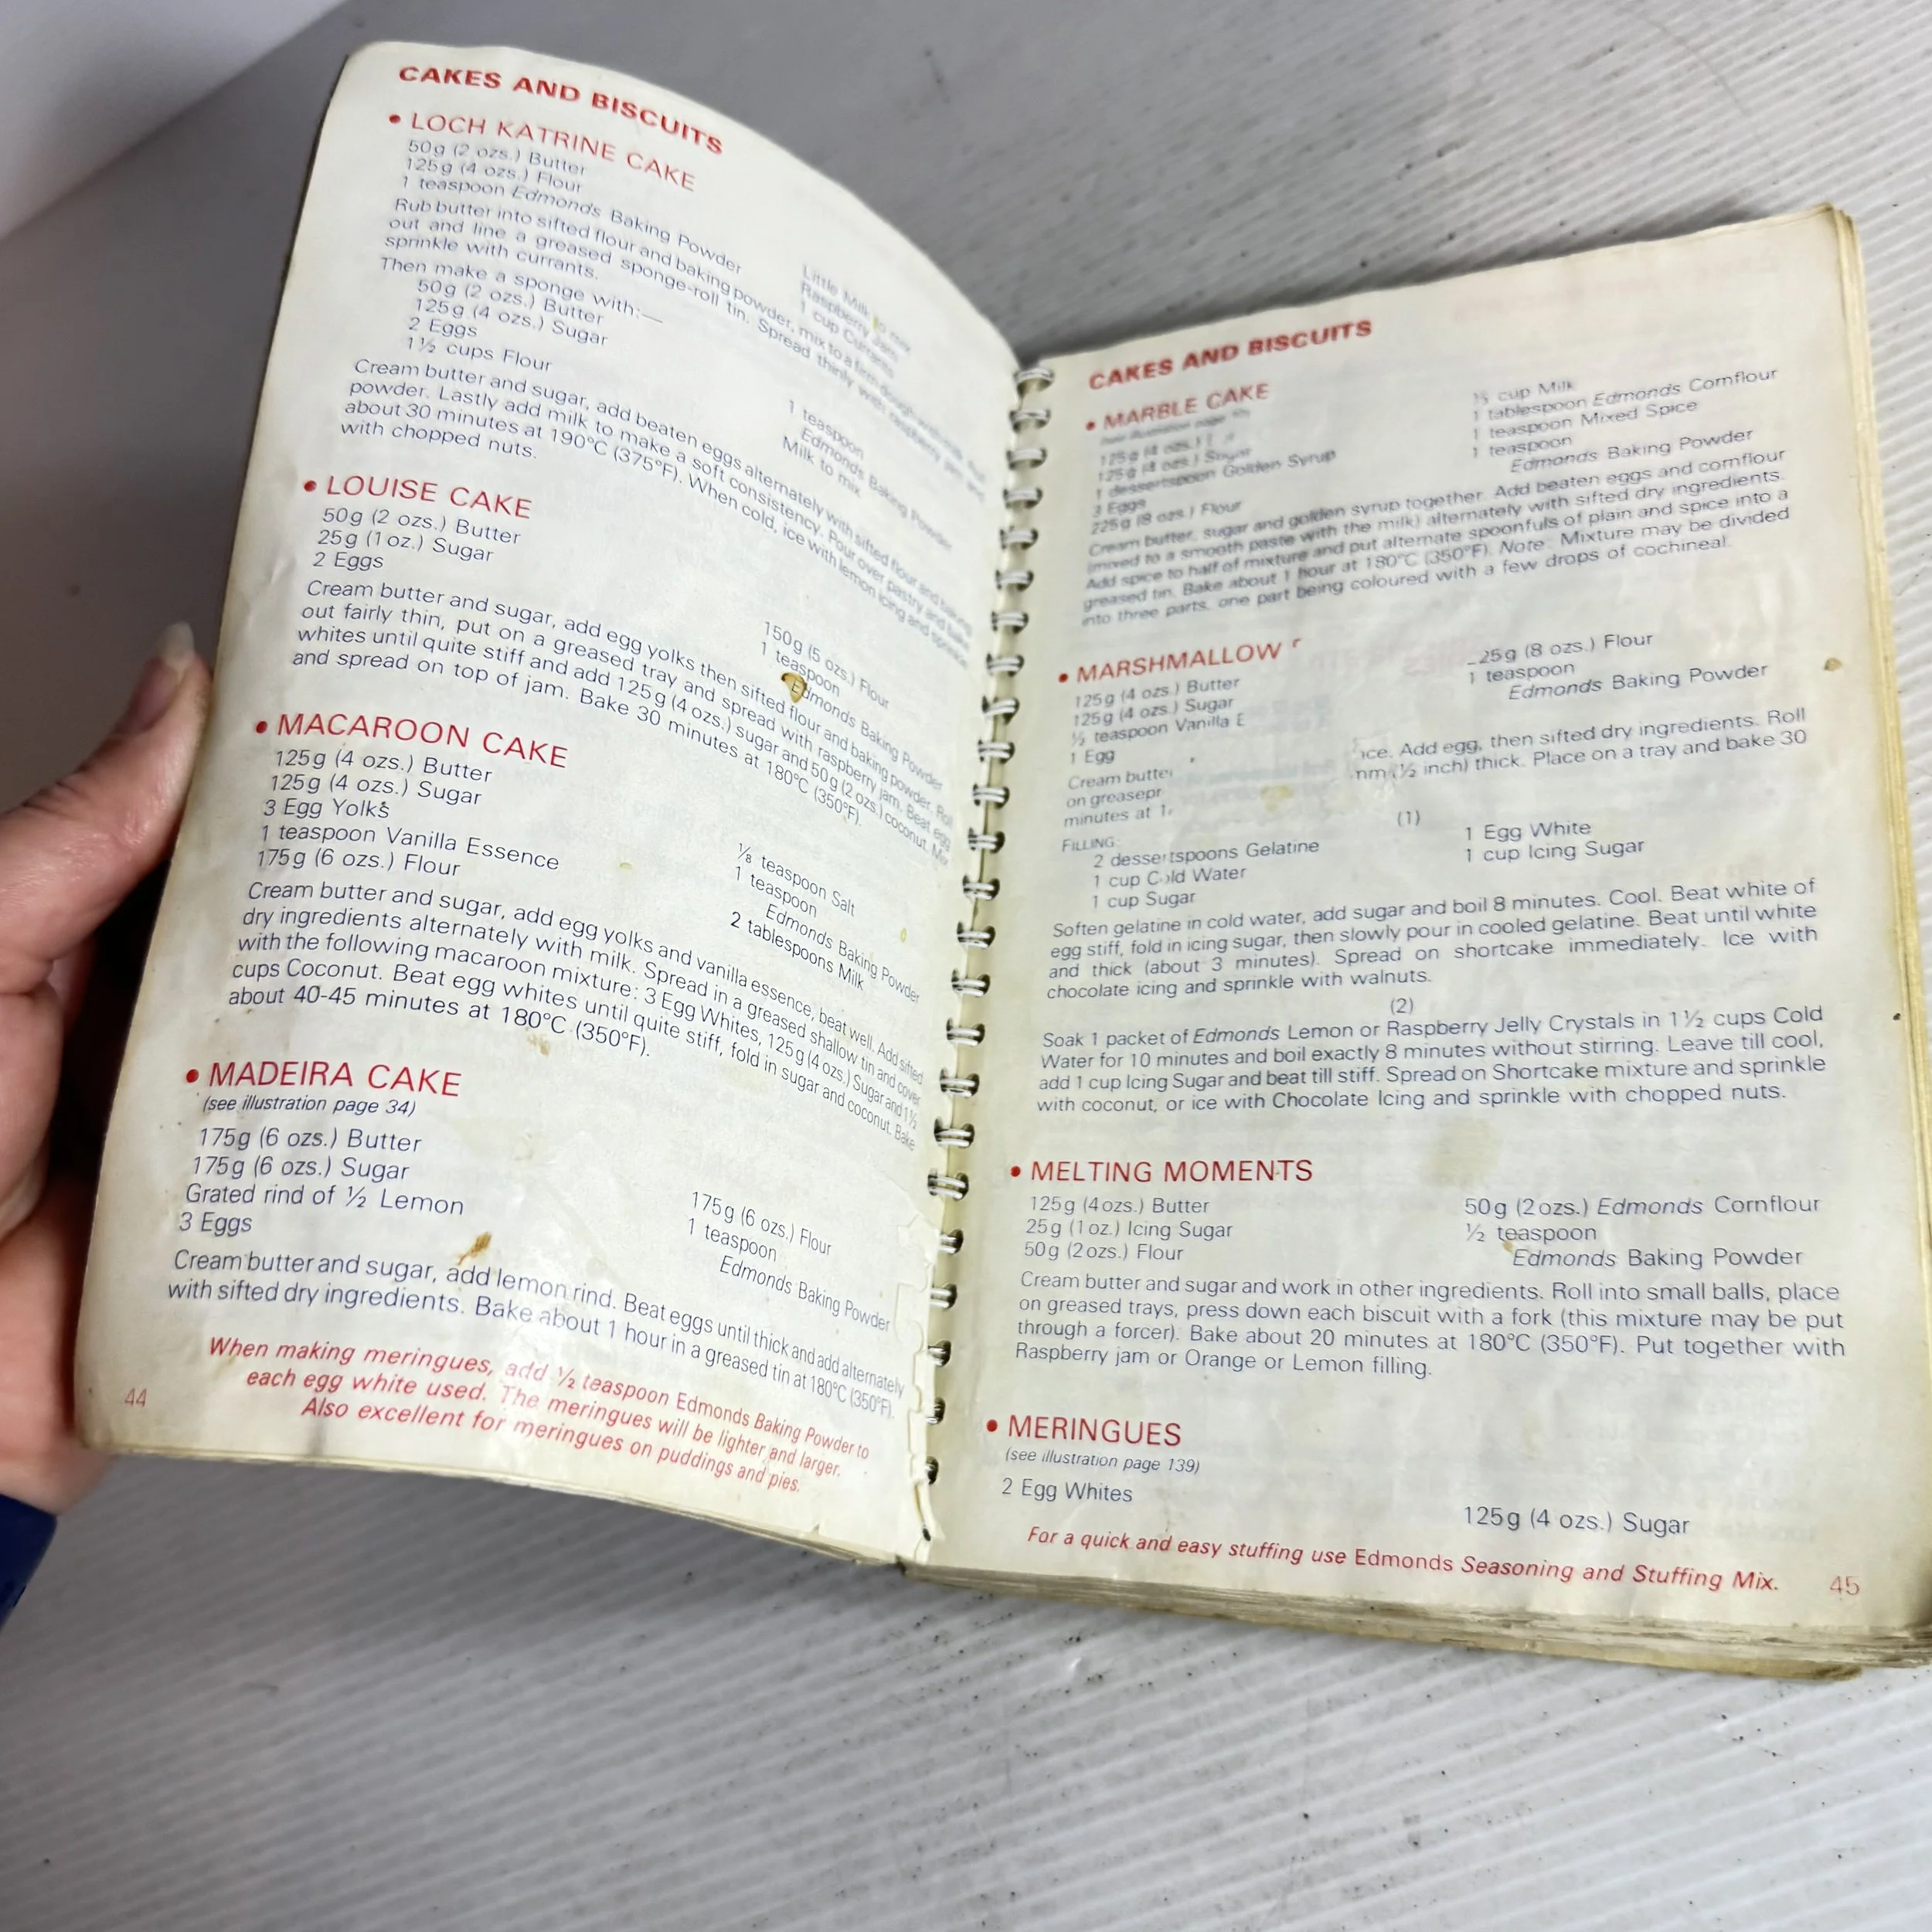 CAKES AND BISCUITS
• LOCH KATRINE CAKE
50g (2 ozs.) Butter
125g (4 ozs.) Flour
1 teaspoon Edmonds Baking Powder
Little Milk to mix
Raspberry Jam
1 cup Currants
Rub butter into sifted flour and baking powder, mix to a firm dough with milk. Roll
out and line a greased sponge-roll tin. Spread thinly with raspberry jam and
sprinkle with currants.
Then make a sponge with:—
50g (2 ozs.) Butter
125g (4 ozs.) Sugar
2 Eggs
1½ cups Flour
1 teaspoon
Edmonds Baking Powder
Milk to mix
Cream butter and sugar, add beaten eggs alternately with sifted flour and baking
powder. Lastly add milk to make a soft consistency. Pour over pastry and bake
about 30 minutes at 190°C (375°F). When cold, ice with lemon icing and sprinkle
with chopped nuts.
• LOUISE CAKE
50g (2 ozs.) Butter
25g (1 oz.) Sugar
2 Eggs
150g (5 ozs.) Flour
1 teaspoon
Edmonds Baking Powder
Cream butter and sugar, add egg yolks then sifted flour and baking powder. Roll
out fairly thin, put on a greased tray and spread with raspberry jam. Beat egg
whites until quite stiff and add 125g (4 ozs.) sugar and 50g (2 ozs.) coconut. Mix
and spread on top of jam. Bake 30 minutes at 180°C (350°F).
• MACAROON CAKE
125g (4 ozs.) Butter
125g (4 ozs.) Sugar
3 Egg Yolks
1 teaspoon Vanilla Essence
175g (6 ozs.) Flour
⅛ teaspoon Salt
1 teaspoon
Edmonds Baking Powder
2 tablespoons Milk
Cream butter and sugar, add egg yolks and vanilla essence, beat well. Add sifted
dry ingredients alternately with milk. Spread in a greased shallow tin and cover
with the following macaroon mixture: 3 Egg Whites, 125g (4 ozs.) Sugar and 1½
cups Coconut. Beat egg whites until quite stiff, fold in sugar and coconut. Bake
about 40-45 minutes at 180°C (350°F).
• MADEIRA CAKE
(see illustration page 34)
175g (6 ozs.) Butter
175g (6 ozs.) Sugar
Grated rind of ½ Lemon
3 Eggs
175g (6 ozs.) Flour
1 teaspoon
Edmonds Baking Powder
Cream butter and sugar, add lemon rind. Beat eggs until thick and add alternately
with sifted dry ingredients. Bake about 1 hour in a greased tin at 180°C (350°F).
When making meringues, add ½ teaspoon Edmonds Baking Powder to
each egg white used. The meringues will be lighter and larger.
Also excellent for meringues on puddings and pies.
44
CAKES AND BISCUITS
• MARBLE CAKE
(see illustration page
125g (4 ozs.)
125g (4 ozs.) Sugar
1 dessertspoon Golden Syrup
3 Eggs
225g (8 ozs.) Flour
cup Milk
1 tablespoon Edmonds Cornflour
1 teaspoon Mixed Spice
1 teaspoon
Edmonds Baking Powder
Cream butter, sugar and golden syrup together. Add beaten eggs and cornflour
(mixed to a smooth paste with the milk) alternately with sifted dry ingredients.
Add spice to half of mixture and put alternate spoonfuls of plain and spice into a
greased tin. Bake about 1 hour at 180°C (350°F). Note: Mixture may be divided
into three parts, one part being coloured with a few drops of cochineal.
• MARSHMALLOW
125g (4 ozs.) Butter
125g (4 ozs.) Sugar
½ teaspoon Vanilla E
1 Egg
25g (8 ozs.) Flour
1 teaspoon
Edmonds Baking Powder
Cream butte nce. Add egg, then sifted dry ingredients. Roll
on greasepr mm (½ inch) thick. Place on a tray and bake 30
minutes at 1
FILLING: (1)
2 dessertspoons Gelatine
1 cup Cold Water
1 cup Sugar
1 Egg White
1 cup Icing Sugar
Soften gelatine in cold water, add sugar and boil 8 minutes. Cool. Beat white of
egg stiff, fold in icing sugar, then slowly pour in cooled gelatine. Beat until white
and thick (about 3 minutes). Spread on shortcake immediately. Ice with
chocolate icing and sprinkle with walnuts.
(2)
Soak 1 packet of Edmonds Lemon or Raspberry Jelly Crystals in 1½ cups Cold
Water for 10 minutes and boil exactly 8 minutes without stirring. Leave till cool,
add 1 cup Icing Sugar and beat till stiff. Spread on Shortcake mixture and sprinkle
with coconut, or ice with Chocolate Icing and sprinkle with chopped nuts.
• MELTING MOMENTS
125g (4ozs.) Butter
25g (1oz.) Icing Sugar
50g (2ozs.) Flour
50g (2ozs.) Edmonds Cornflour
½ teaspoon
Edmonds Baking Powder
Cream butter and sugar and work in other ingredients. Roll into small balls, place
on greased trays, press down each biscuit with a fork (this mixture may be put
through a forcer). Bake about 20 minutes at 180°C (350°F). Put together with
Raspberry jam or Orange or Lemon filling.
• MERINGUES
(see illustration page 139)
2 Egg Whites
125g (4 ozs.) Sugar
For a quick and easy stuffing use Edmonds Seasoning and Stuffing Mix.
45